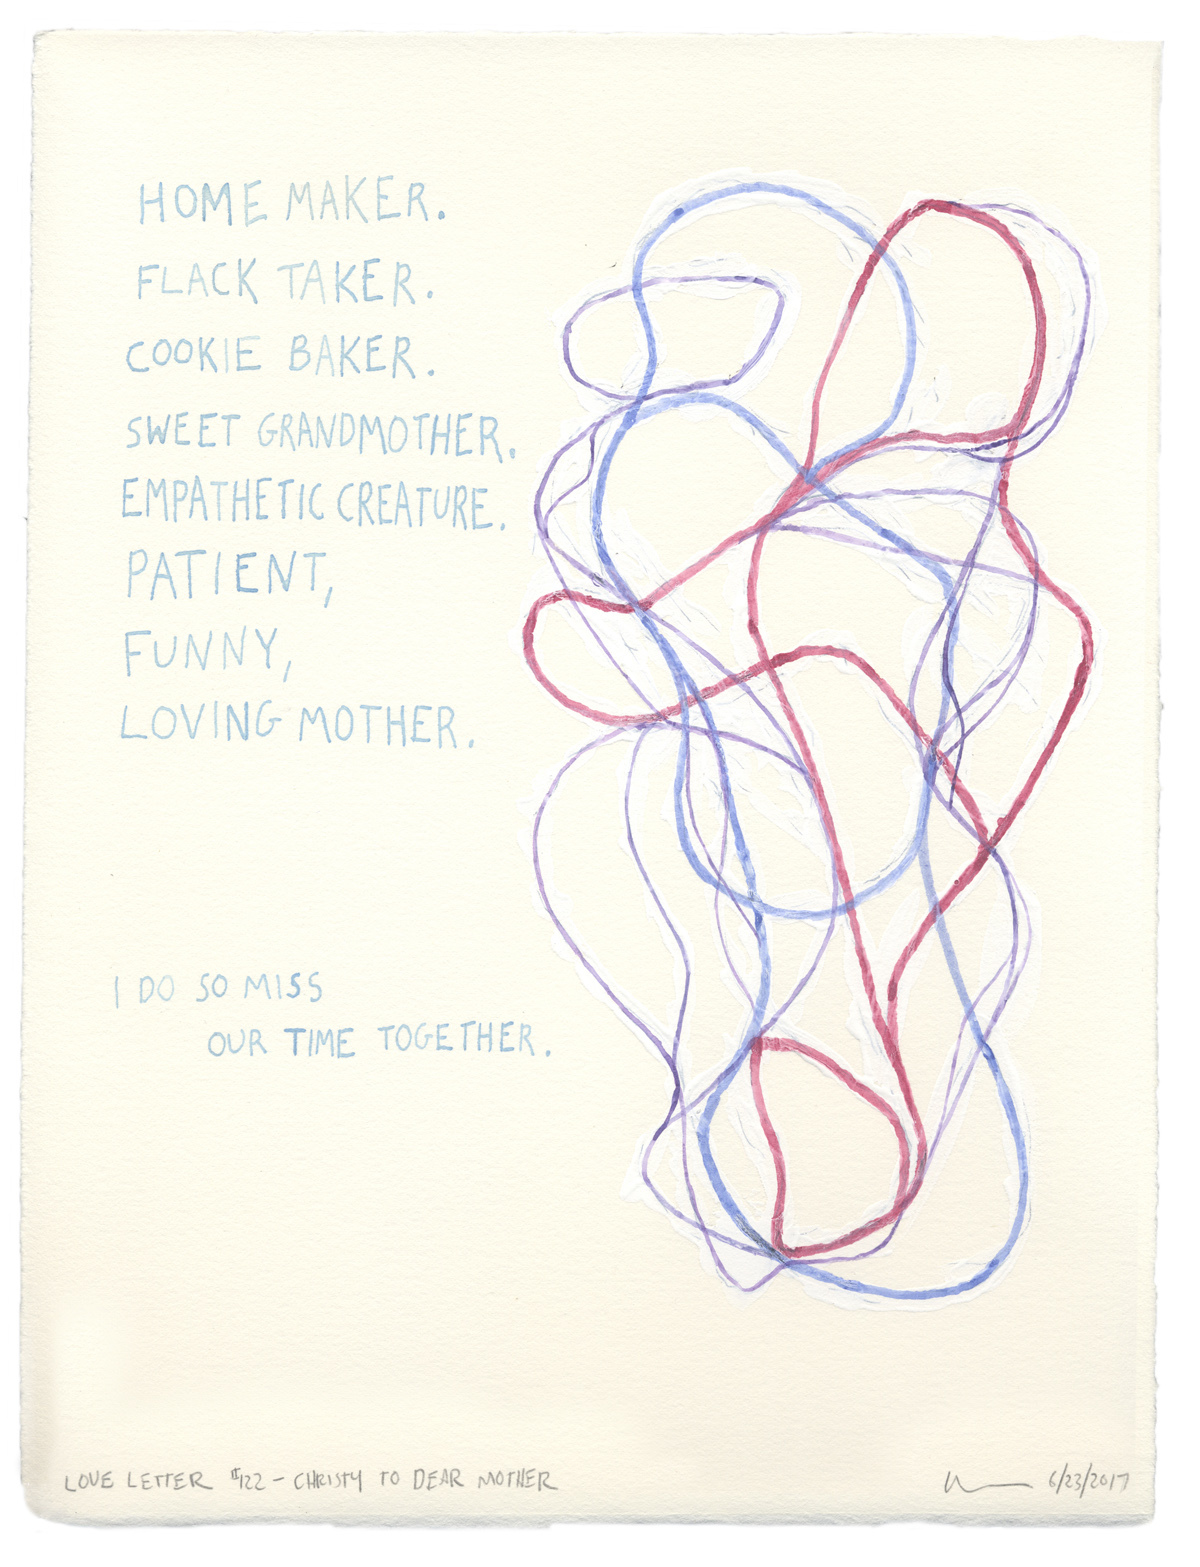 HOME MAKER.
FLACK TAKER.
COOKIE BAKER.
SWEET GRANDMOTHER.
EMPATHETIC CREATURE.
PATIENT,
FUNNY,
LOVING MOTHER.
I DO SO MISS
OUR TIME TOGETHER.
LOVE LETTER #122 - CHRISTY TO DEAR MOTHER
6/23/2017